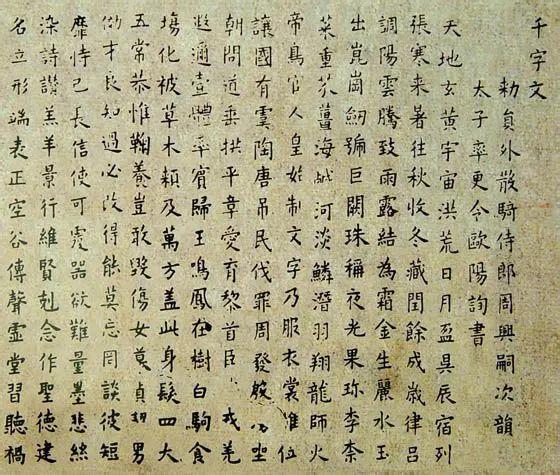 千字文
勅員外散騎侍郎周興嗣次韻
太子率更令歐陽詢書
天地玄黃宇宙洪荒日月盈昃辰宿列
張寒来暑往秋收冬藏閏餘成歲律吕
調陽雲騰致雨露結為霜金生麗水玉
出崑崗劒號巨闕珠稱夜光果珎李柰
菜重芥薑海醎河淡鱗潛羽翔龍師火
帝鳥官人皇始制文字乃服衣裳推位
讓國有虞陶唐吊民伐罪周發殷坐
朝問道垂拱平章愛育黎首臣戎羌
遐邇壹體率賓歸王鳴鳳在樹白駒食
塲化被草木頼及萬方盖此身髮四大
五常恭惟鞠養豈敢毀傷女慕貞男
效才良知過必改得能莫忘罔談彼短
靡恃己長信使可覆器欲難量墨悲絲
染詩讚羔羊景行維賢剋念作聖德建
名立形端表正空谷傳聲虛堂習聽禍